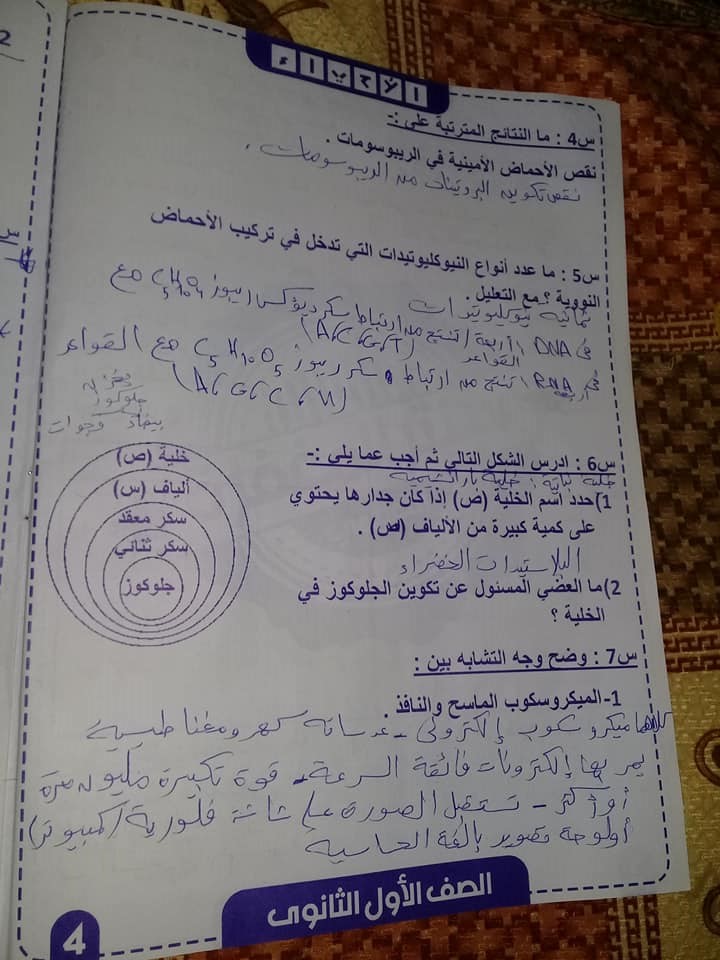 الأحياء
س4 : ما النتائج المترتبة على :-
نقص الأحماض الأمينية في الريبوسومات .
نقص تكوين البروتينات من الريبوسومات .
س5 : ما عدد أنواع النيوكليوتيدات التي تدخل في تركيب الأحماض
النووية ؟ مع التعليل .
ثمانية نيوكليوتيدات
في DNA أربعة / تنتج من ارتباط سكر ديؤكسي ريبوز C5H10O4 مع
القواعد (A, C, G, T)
في RNA أربعة / تنتج من ارتباط سكر ريبوز C5H10O5 مع القواعد
(A, G, C, U)
جلوكوز
س6 : ادرس الشكل التالي ثم أجب عما يلي :-
خلية نباتية : خلية بارانشيمية
1) حدد اسم الخلية (ص) إذا كان جدارها يحتوي
على كمية كبيرة من الألياف (س) .
البلاستيدات الخضراء
2) ما العضي المسئول عن تكوين الجلوكوز في
الخلية ؟
خلية (ص)
ألياف (س)
سكر معقد
سكر ثنائي
جلوكوز
س7 : وضح وجه التشابه بين :
1-الميكروسكوب الماسح والنافذ .
كلاهما ميكروسكوب إلكتروني - عدساته كهرومغناطيسية
يمر بها إلكترونات فائقة السرعة - قوة تكبيره مليون مرة
أو أكثر - تستقبل الصورة على شاشة فلورية (كمبيوتر)
أو لوحة تصوير بالغة الحساسية
الصف الأول الثانوى
4